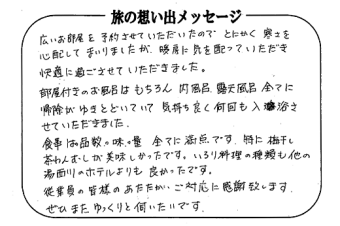 旅の想い出メッセージ
広いお部屋を予約させていただいたので とにかく寒さを
心配してまいりましたが、暖房に気を配っていただき
快適に過ごさせていただきました。
部屋付きのお風呂はもちろん 内風呂、露天風呂 全てに
掃除がゆきとどいていて 気持ち良く何回も入浴さ
せていただきました。
食事は品数、味、量 全てに満点です。特に 梅干し
茶わんむしが美味しかったです。いろり料理の種類も他の
湯西川のホテルよりも 良かったです。
従業員の皆様のあたたかいご対応に感謝致します。
ぜひまたゆっくりと伺いたいです。